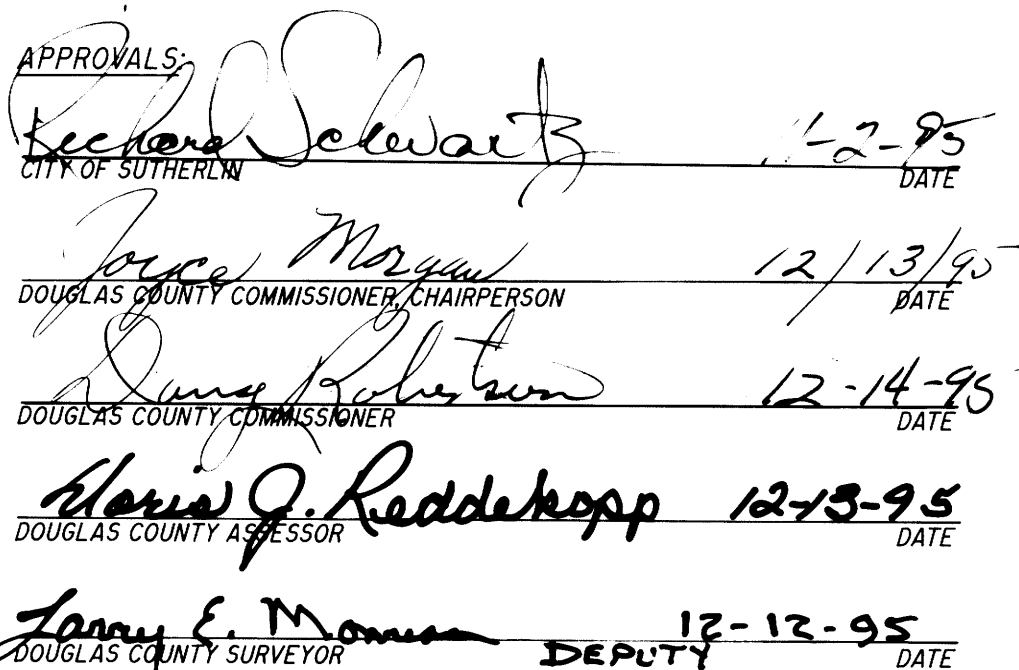 APPROVALS:
Richard Schwartz 11-2-95
CITY OF SUTHERLIN DATE
Joyce Morgan 12/13/95
DOUGLAS COUNTY COMMISSIONER, CHAIRPERSON DATE
Doug Robertson 12-14-95
DOUGLAS COUNTY COMMISSIONER DATE
J. Reddekopp 12-13-95
DOUGLAS COUNTY ASSESSOR DATE
Larry E. 12-12-95
DOUGLAS COUNTY SURVEYOR DEPUTY DATE